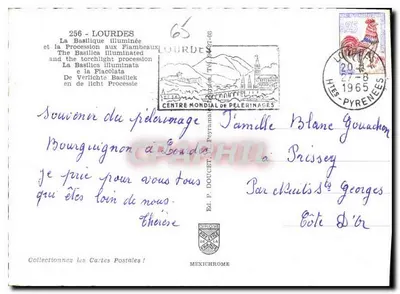 256 - LOURDES
La Basilique illuminée
et la Procession aux Flambeaux
The Basilica illuminated
and the torchlight procession
La Basilica illuminata
e la Fiaccolata
De Verlichte Basiliek
en de licht Processie
65
LOURDES
CENTRE MONDIAL DE PELERINAGES
27-8
1965
HTES-PYRENEES
Souvenir du pèlerinage
Bourguignon à Lourdes
je prie pour vous tous
qui êtes loin de nous.
Thérèse
Ed. P. DOUCET
Famille Blanc
à Prissey
Par Nuits St Georges
Côte D'Or
Collectionnez les Cartes Postales !
MEXICHROME